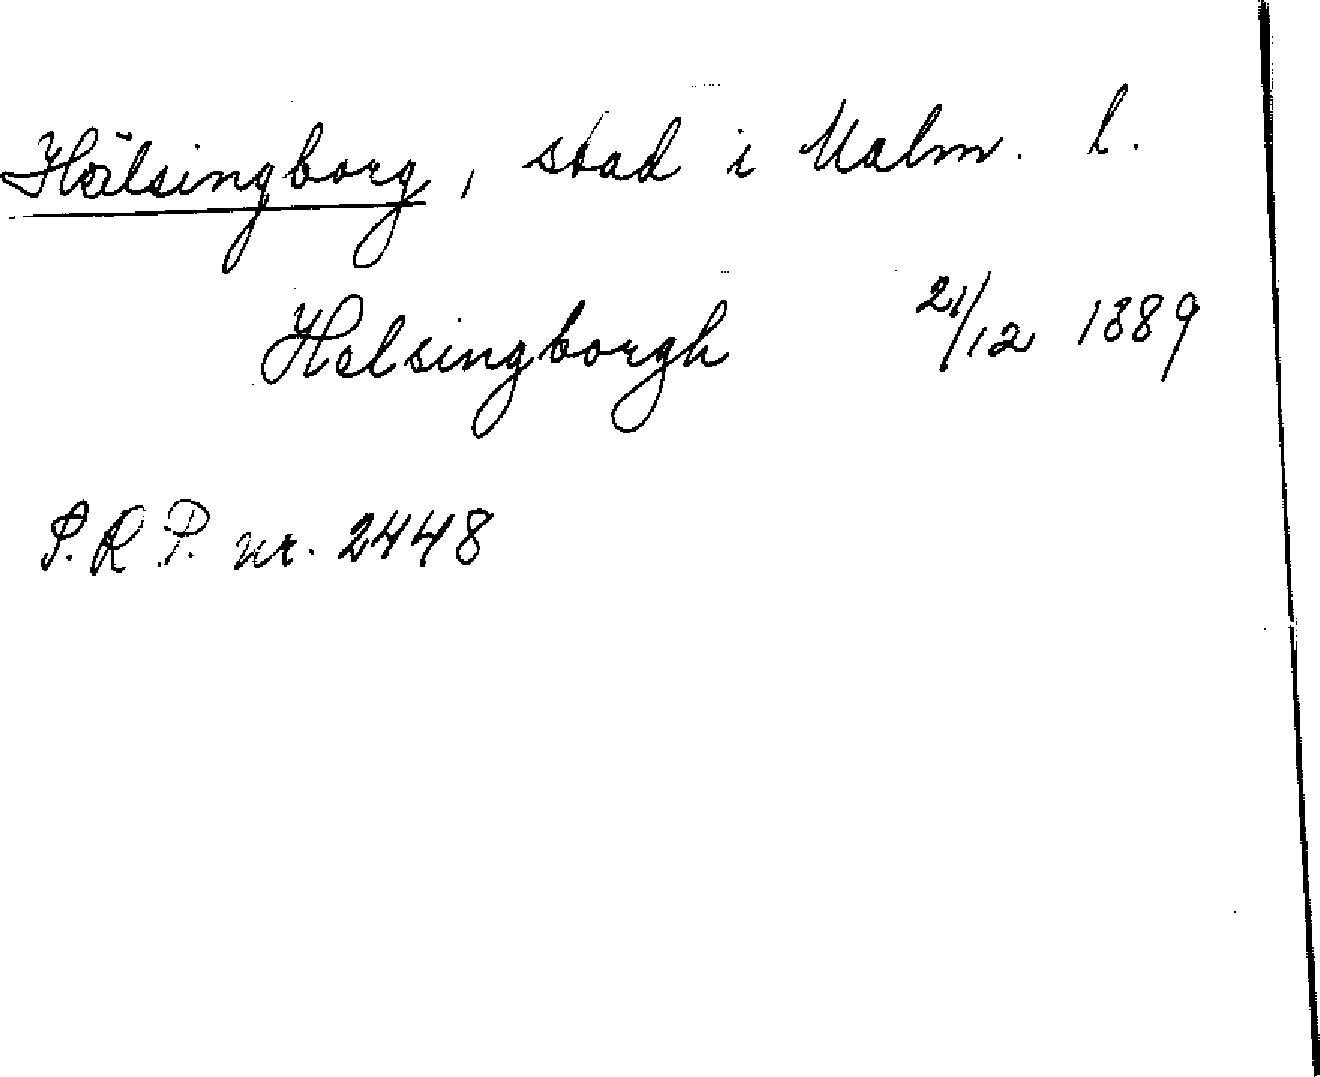 Hälsingborg, stad i Malm. l.
Helsingborgh 21/12 1389
P.R.P. nr. 2448